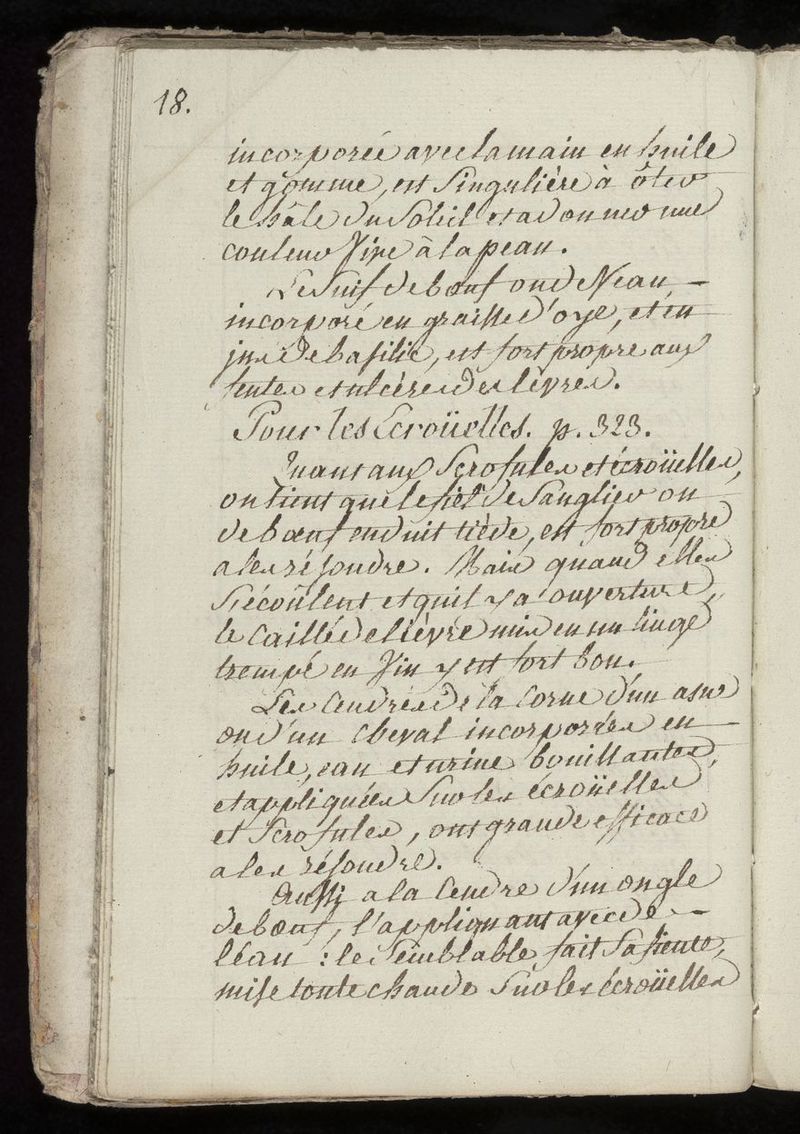 18.
incorporée avec la main en huile
et gomme, est singulière à ôter
le hâle du Soleil et a donner une
couleur Vive à la peau.
Le Suif de boeuf ou de Veau
incorporé en graisse d'oye, et en
jus de basilic, est fort propre aux
fentes et ulcéres des lévres.
Pour les Ecroüelles. p. 323.
Quant aux Scrofules et écroüelles,
on tient que le fiel de Sanglier ou
de boeuf enduit tiède, est fort propre
a les résoudre. Mais quand elles
s'écoulent et qu'il y a ouverture,
le Caillé de liévre mis en un linge
trempé en Vin y est fort bon.
Les Cendres de la Corne d'un asne
ou d'un cheval incorporées en
huile, eau et urine bouillantes,
et appliquées Sur les écroüelles
et Scrofules, ont grande efficace
a les résoudre.
Aussi a la Cendre d'un ongle
de boeuf, l'appliquant avec de
l'éau : le Semblable fait Sa fiente,
mise toute chaude Sur les écroüelles